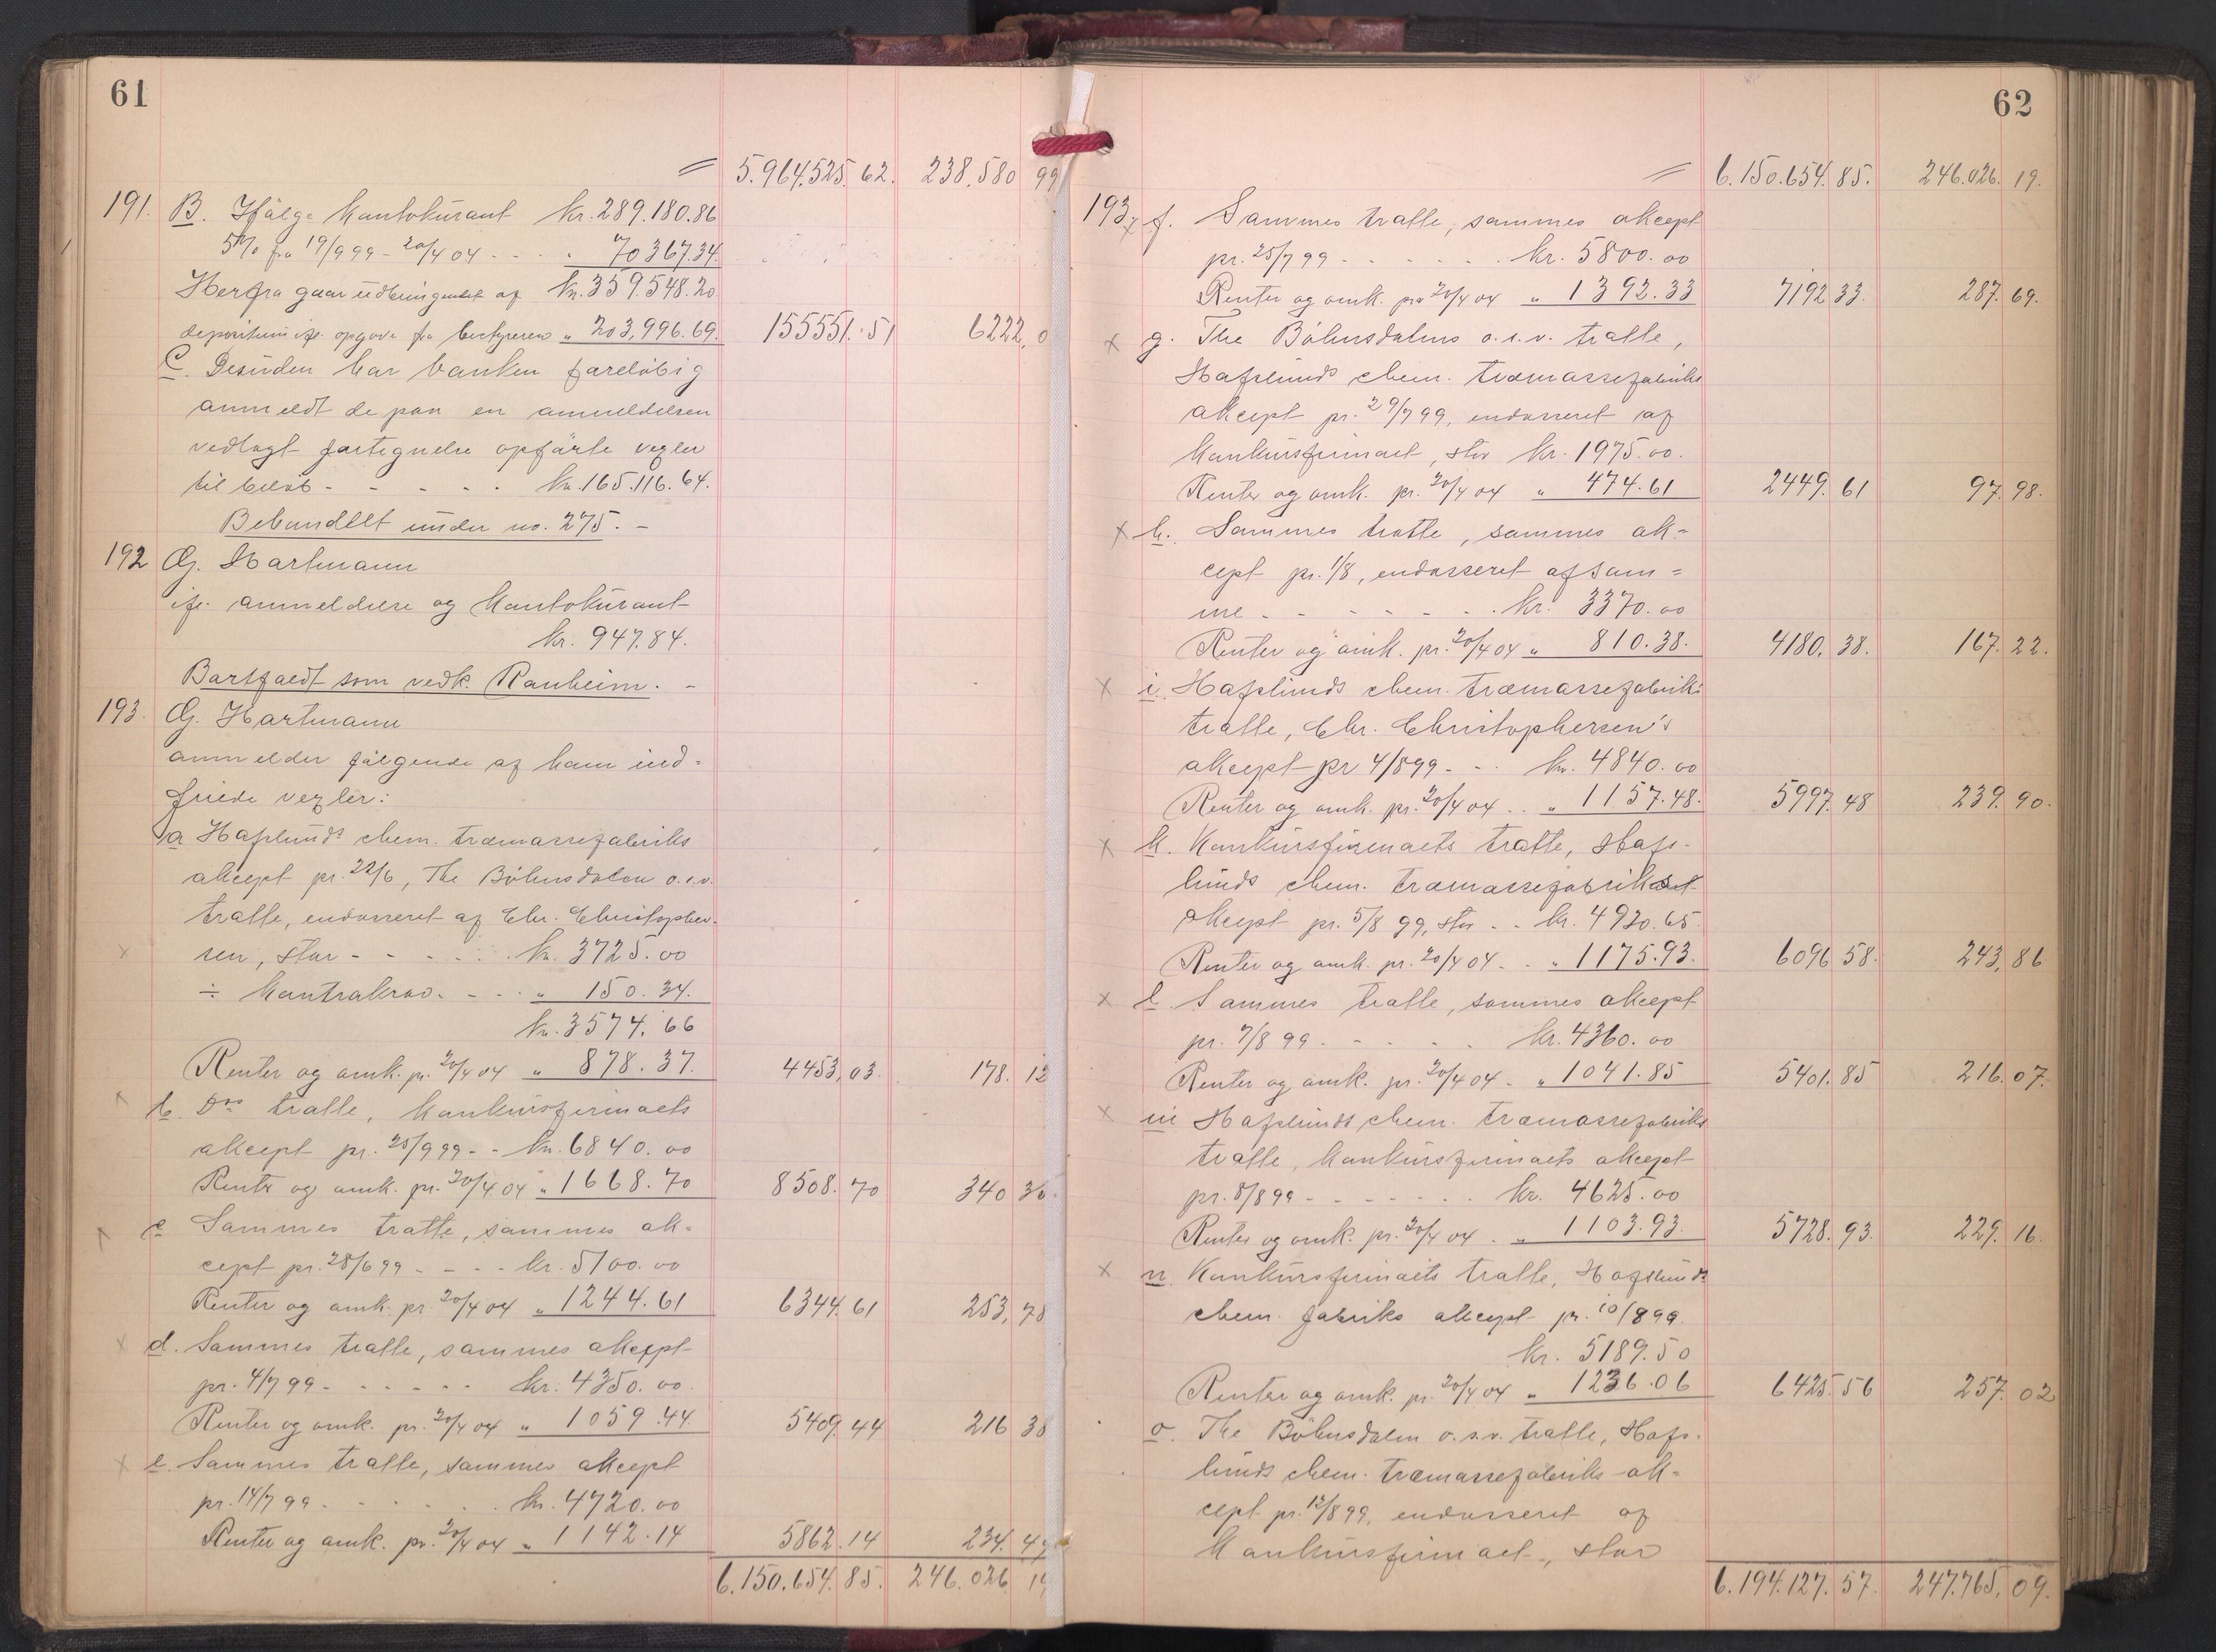 61
= 5.964.525.62. 238.580 99
191. B. Ifölge Kontokurant kr. 289.180.86
5% fra 19/9 99 - 20/4 04 - - - " 70367.34.
Herfra gaar udbringendet af kr. 359.548.20
depositum ifø. opgave fra bestyreren " 203,996.69. 155551.51 6222,0
C. Desuden har banken foreløbig
anmeldt de paa en anmeldelsen
vedlagt fortegnelse opførte vexler
til beløb - - - - - kr. 165.116.64.
Behandlet under no. 275. -
192 G. Hartmann
ifø. anmeldelse og Kontokurant
kr. 947.84.
Bortfaldt som vedk. Ranheim. -
193. G. Hartmann
anmelder følgende af ham ind-
friede vexler:
a Hafslunds chem. træmassefabriks
akcept pr. 22/6, The Böhnsdalen o.s.v.
tratte, endosseret af Chr. Christopher-
sen, stor - - - - - kr. 3725.00
÷ Kontrakrav. - - - " 150.34.
kr. 3574.66
Renter og omk. pr. 20/4 04 " 878.37. 4453,03. 178.12
b. Dos tratte, Konkursfirmaets
akcept pr. 25/9 99 - - kr. 6840.00
Renter og omk. pr. 20/4 04 " 1668.70 8508.70 340 35
c Sammes tratte, sammes ak-
cept pr. 28/6 99 - - - - kr. 5100.00
Renter og omk. pr. 20/4 04 " 1244.61 6344.61 253,78
d. Sammes tratte, sammes akcept
pr. 4/7 99 - - - - - - kr. 4350.00
Renter og omk. pr. 20/4 04 " 1059.44. 5409.44 216 38
e. Sammes tratte, sammes akcept
pr. 14/7 99 - - - - - - kr. 4720.00
Renter og omk. pr. 20/4 04 " 1142.14 5862.14 234.49
6.150.654.85. 246.026.19
62
= 6.150.654.85. 246.026.19.
193. x f. Sammes tratte, sammes akcept
pr. 25/7 99 - - - - - - kr. 5800.00
Renter og omk. pr. 20/4 04 " 1392.33 7192 33. 287.69.
x g. The Böhnsdalens o.s.v. tratte,
Hafslunds chem. træmassefabriks
akcept pr. 29/7 99, endosseret af
Konkursfirmaet, stor kr. 1975.00.
Renter og omk. pr. 20/4 04 " 474.61 2449.61 97.98.
x h. Sammes tratte, sammes ak-
cept pr. 1/8, endosseret af sam=
me - - - - - - - kr. 3370.00
Renter og omk. pr. 20/4 04 " 810.38. 4180.38. 167.22.
x i. Hafslunds chem. træmassefabriks
tratte, Chr. Christophersen's
akcept pr 4/8 99 - - - kr. 4840.00
Renter og omk. pr. 20/4 04 - - " 1157.48. 5997.48 239.90.
x k. Konkursfirmaets tratte, Hafs-
lunds chem. træmassefabriks
akcept pr. 5/8 99, stor - - kr. 4920.65.
Renter og omk. pr. 20/4 04 - - " 1175.93. 6096 58. 243,86
x l. Sammes tratte, sammes akcept
pr. 7/8 99 - - - - - kr. 4360.00
Renter og omk. pr. 20/4 04 - " 1041.85 5401.85 216.07.
x m Hafslunds chem. træmassefabriks
tratte, Konkursfirmaets akcept
pr. 8/8 99 - - - - - - - kr. 4625.00
Renter og omk. pr. 20/4 04 - " 1103.93. 5728.93. 229.16.
x n. Konkursfirmaets tratte, Hafslunds
chem. fabriks akcept pr. 10/8 99.
kr. 5189.50
Renter og omk. pr. 20/4 04 " 1236.06 6425.56 257.02
o. The Böhnsdalen o.s.v. tratte, Hafs-
lunds chem. træmassefabriks ak-
cept pr. 12/8 99, endosseret af
Konkursfirmaet, stor
6.194.127.57. 247.765.09.